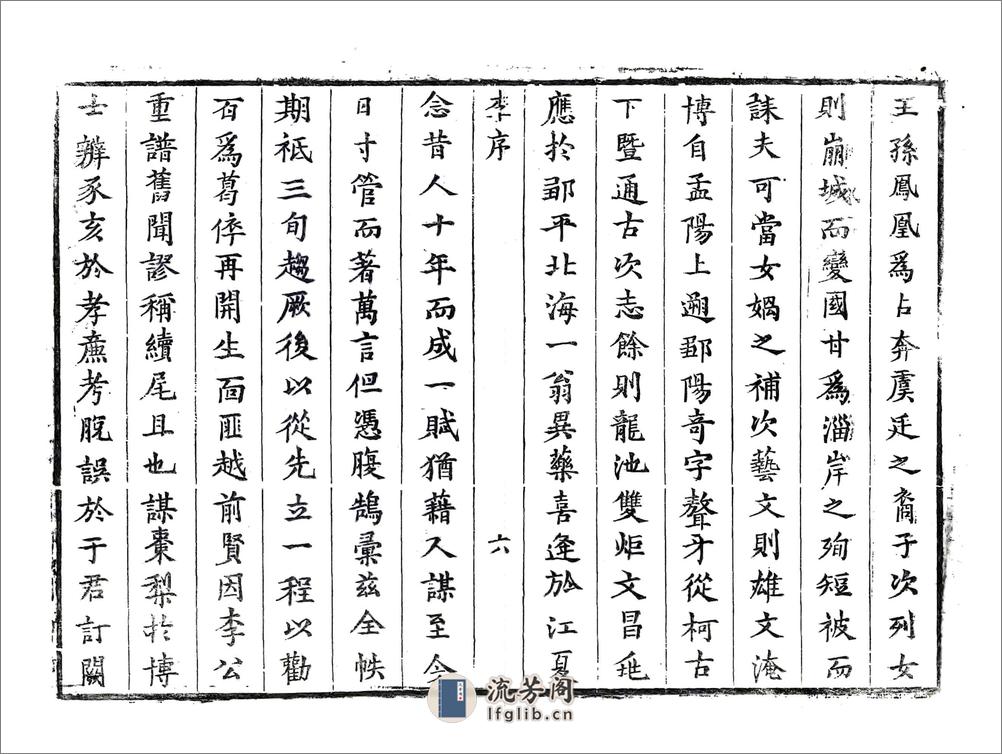 王孫鳳凰爲占奔虞廷之裔子次列女
則崩城而變國甘爲淄岸之殉短被而
誅夫可當女媧之補次藝文則雄文淹
博自孟陽上遡郢陽竒字聱牙從柯古
下暨通古次志餘則龍池雙炬文昌乖
應於鄒平北海一翁異藥喜逢於江夏
李序
六
念昔人十年而成一賦猶藉人謀至今
日寸管而著萬言但憑腹鵠彙兹全帙
期祇三旬趨厥後以從先立一程以勸
百爲葛倅再開生面匪越前賢因李公
重譜舊聞謬稱續尾且也謀棗梨於博
士辨豕亥於孝廉考脫誤於于君訂闕
流芳阁
lfglib.cn